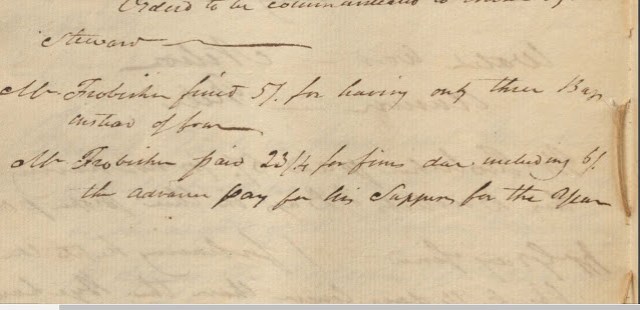 Orderd to be communicated to
Steward
Mr Frobisher fined 5/. for having only three
instead of four
Mr Frobisher paid 23/4 for fines due including 6/.
the advance pay for his Suppers for the Year